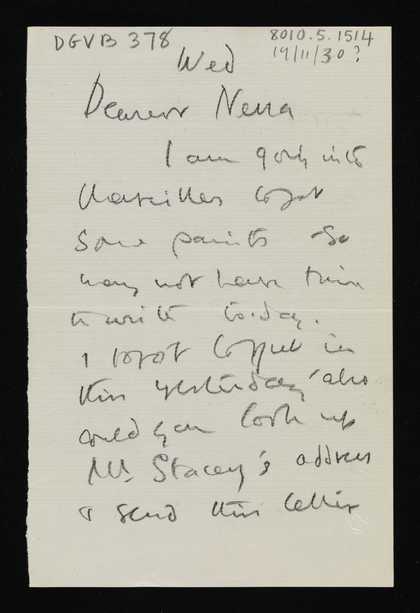 DGVB 378
8010.5.1514
19/11/30?
Wed
Dearest Nessa
I am going into
Marseilles to get
some paints so
may not have time
to write to-day.
I forgot to put in
this yesterday also
could you look up
Mr Stacey's address
& send this letter